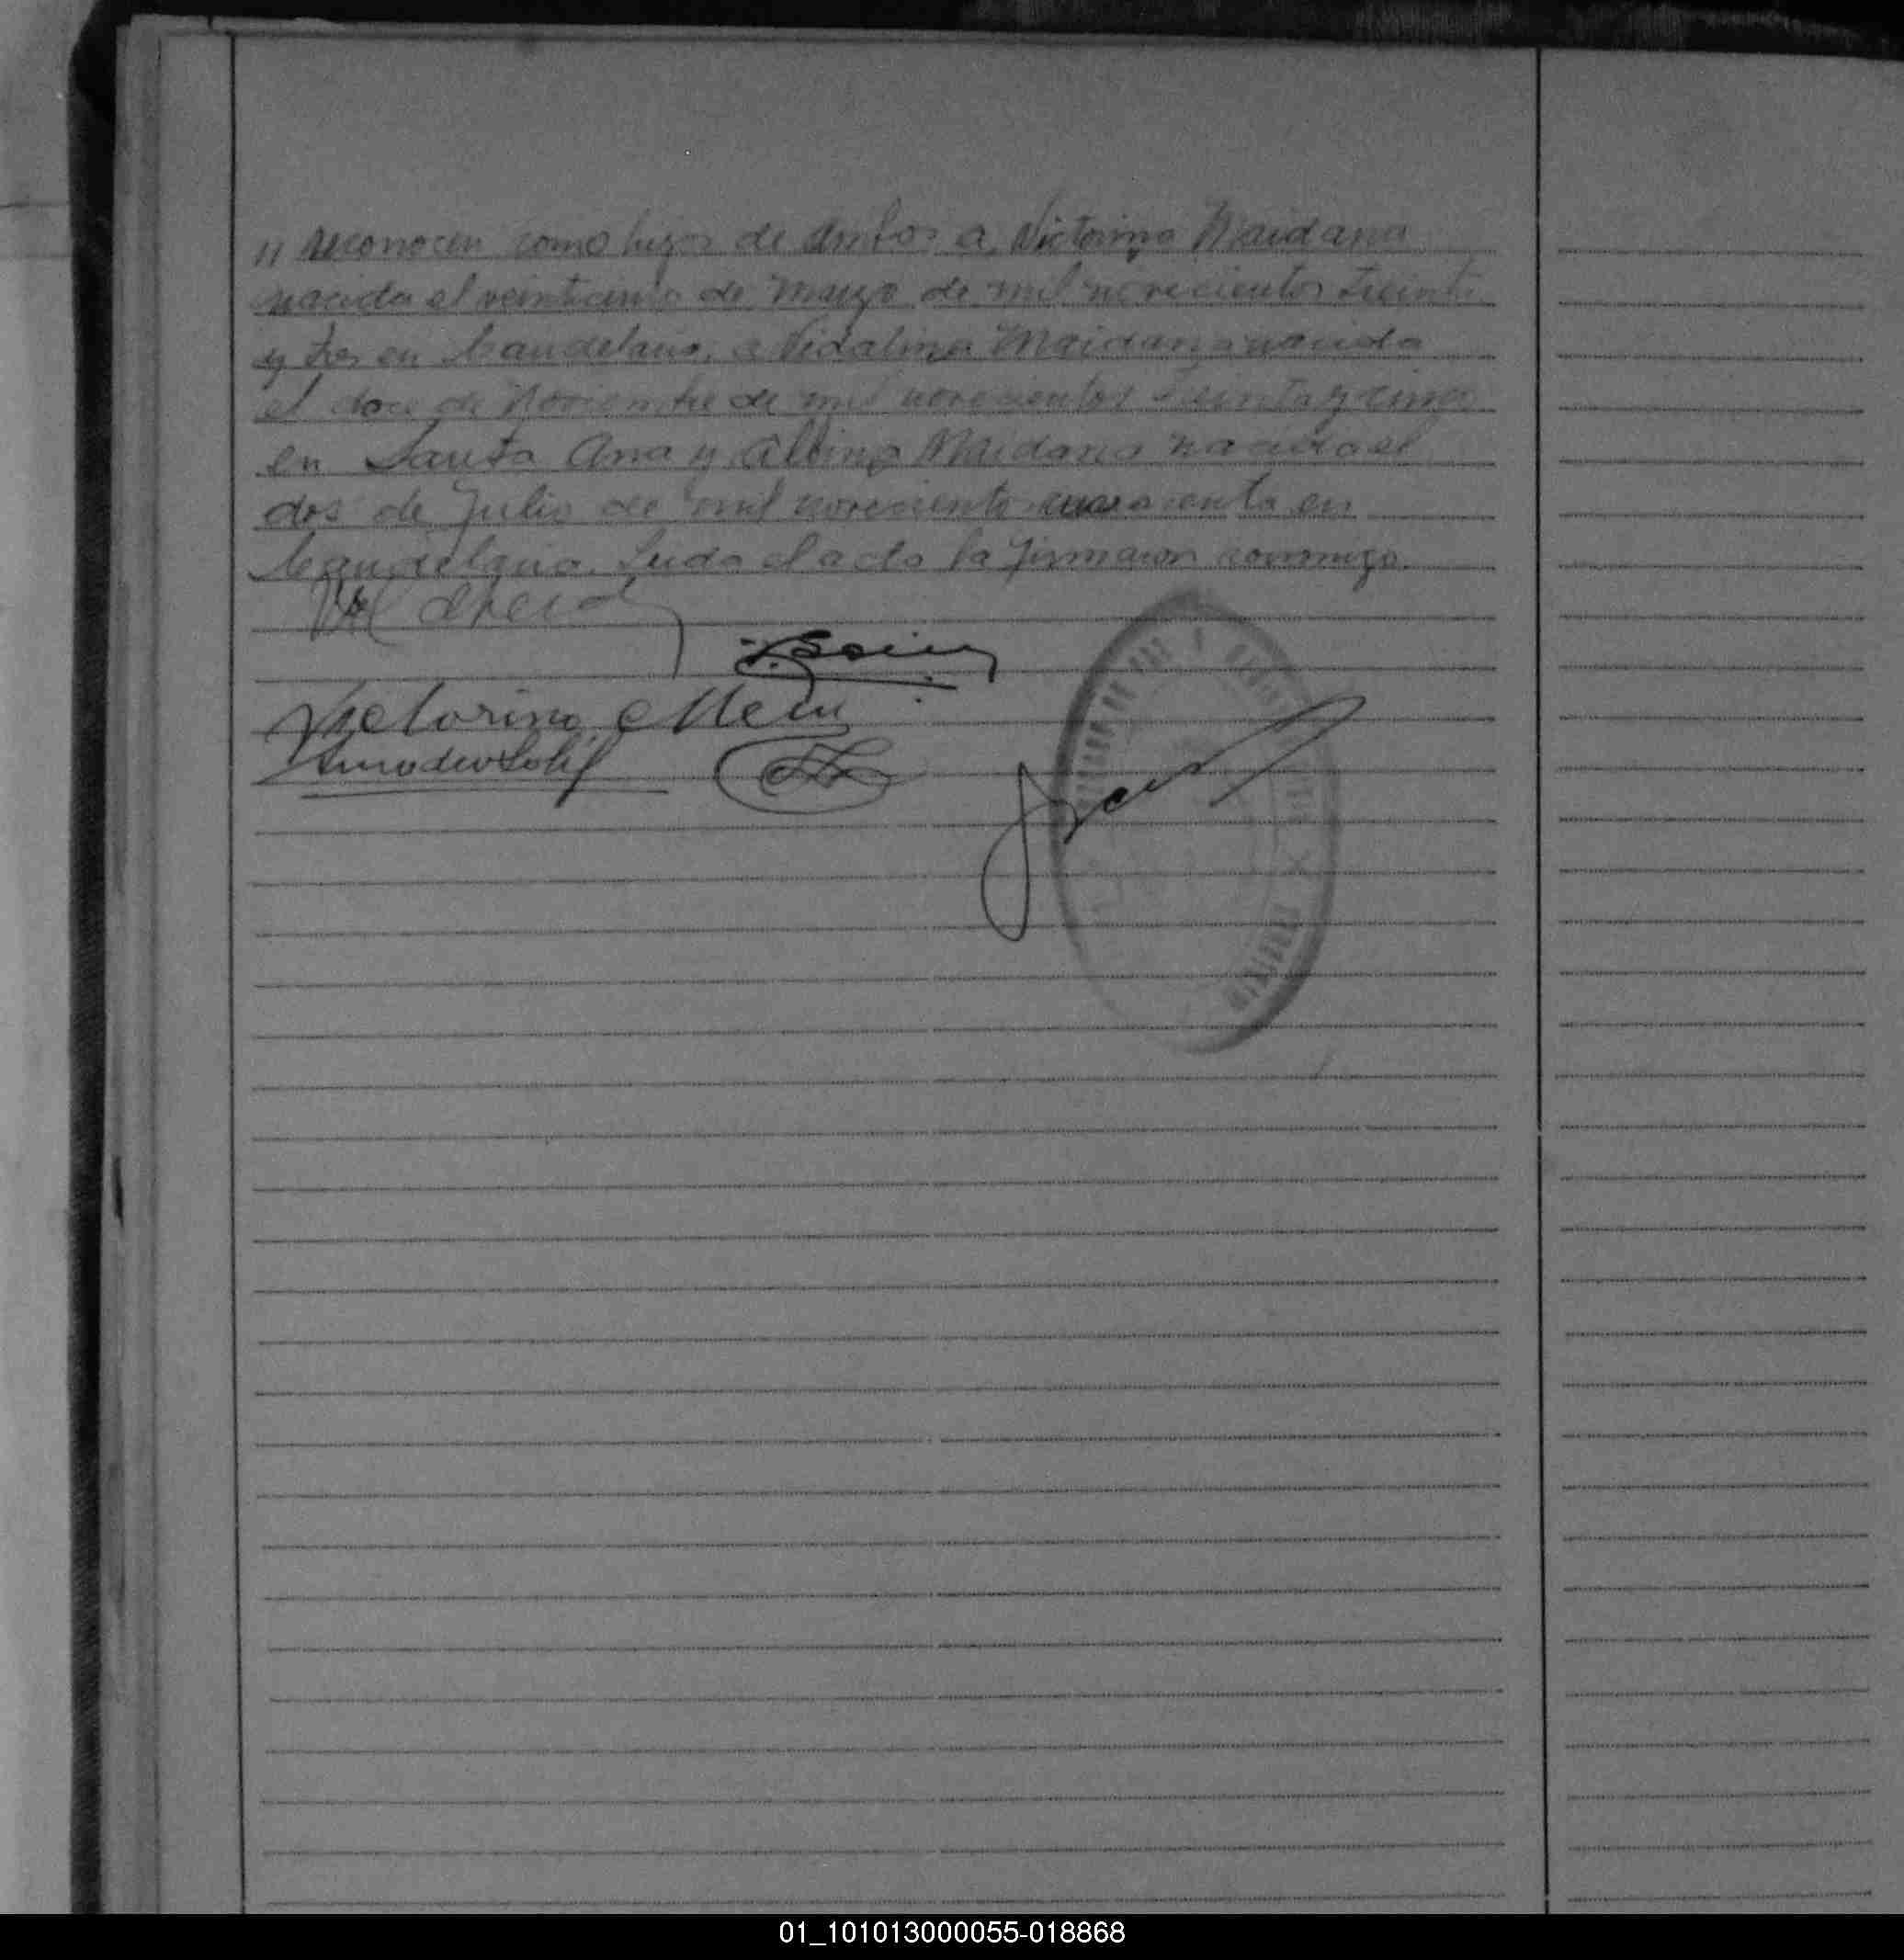 " reconocen como hijos de ambos a, Victorina Maidana
nacida el veinticinco de Marzo de mil novecientos treinta
y tres en Candelaria, a Vidalina Maidana nacida
el doce de Noviembre de mil novecientos treinta y cinco
en Santa Ana y Albino Maidana nacido el
dos de Julio de mil novecientos cuarenta en
Candelaria. Leida el acta la firmaron conmigo.
Victorino
Amadeo Solis
01_101013000055-018868